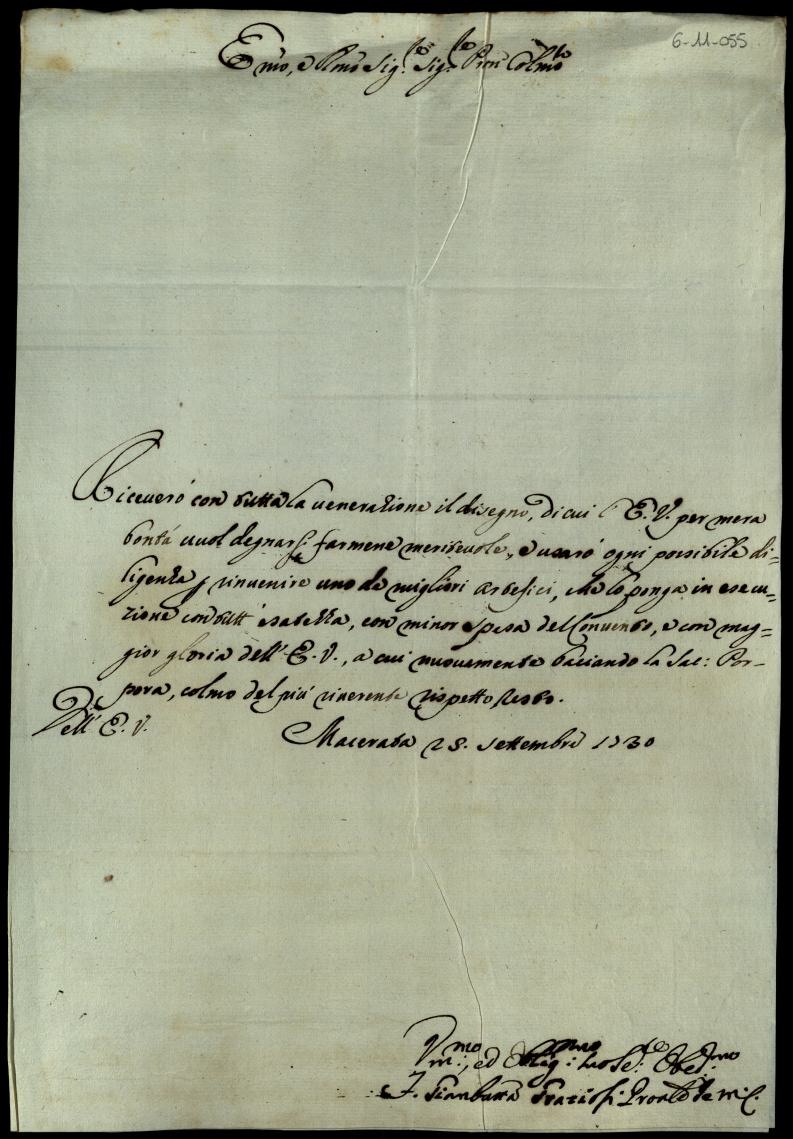 6-11-055
Emo, e Rmo Sig.re Sig.re Pron Colmo
Riceverò con tutta la venerazione il disegno, di cui l'E. V. per mera
bontà vuol degnarsi farmene meritevole, e usarò ogni possibile di=
ligenza p rinvenire uno de migliori artefici, che lo ponga in esecu=
zione con tutt'esatezza, con minor spesa del Convento, e con mag=
gior gloria dell'E. V., a cui nuovamente baciando la Sac: Por=
pora, colmo del più riverente rispetto resto.
Dell'E. V.
Macerata 28. settembre 1730
Vmo:, ed Obligmo: suo Se.re Obedmo.
F. Gianbatta Graziosi Provle de m. C.